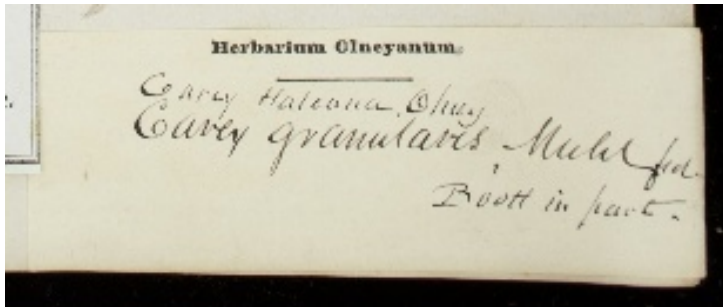 Herbarium Olneyanum.
Carex Haleana, Olney
Carex granularis, Muhl
Boott in part.